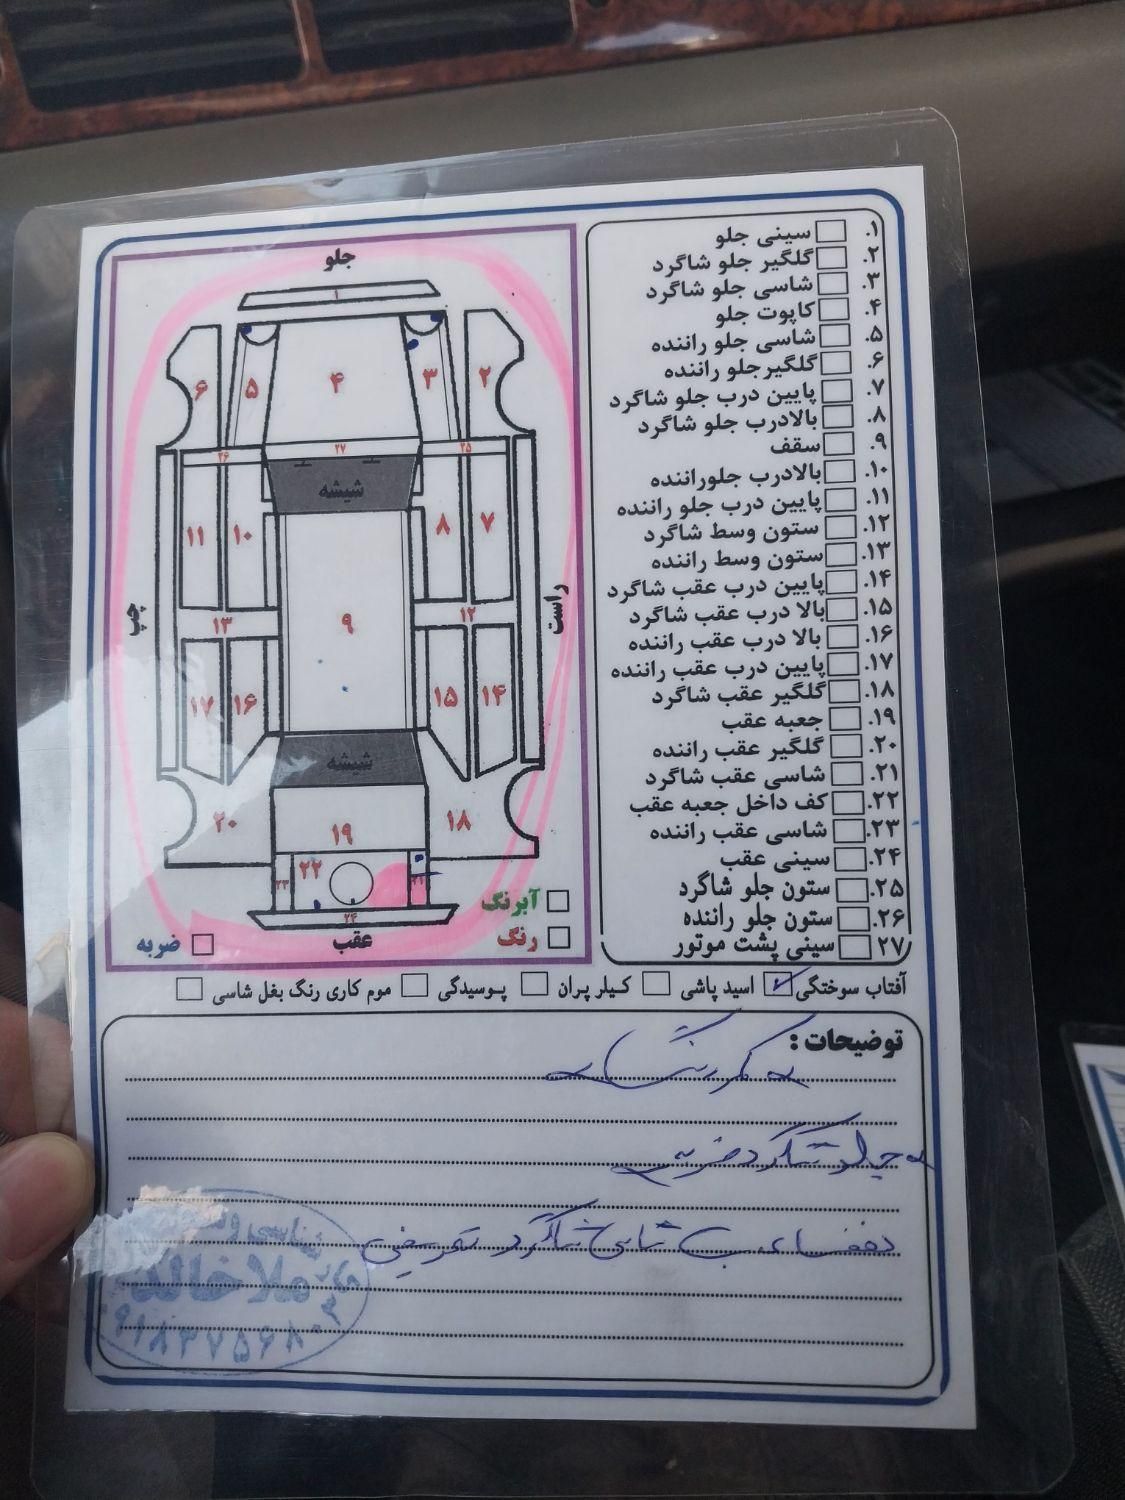 جلو
۱
۶
۵
۴
۳
۲
۲۶
۲۷
۲۵
شیشه
۱۱
۱۰
۸
۷
چپ
راست
۱۳
۹
۱۲
۱۷
۱۶
۱۵
۱۴
شیشه
۲۰
۱۹
۱۸
۲۳
۲۲
۲۴
عقب
آبرنگ
رنگ
ضربه
۱. سینی جلو
۲. گلگیر جلو شاگرد
۳. شاسی جلو شاگرد
۴. کاپوت جلو
۵. شاسی جلو راننده
۶. گلگیرجلو راننده
۷. پایین درب جلو شاگرد
۸. بالادرب جلو شاگرد
۹. سقف
۱۰. بالادرب جلوراننده
۱۱. پایین درب جلو راننده
۱۲. ستون وسط شاگرد
۱۳. ستون وسط راننده
۱۴. پایین درب عقب شاگرد
۱۵. بالا درب عقب شاگرد
۱۶. بالا درب عقب راننده
۱۷. پایین درب عقب راننده
۱۸. گلگیر عقب شاگرد
۱۹. جعبه عقب
۲۰. گلگیر عقب راننده
۲۱. شاسی عقب شاگرد
۲۲. کف داخل جعبه عقب
۲۳. شاسی عقب راننده
۲۴. سینی عقب
۲۵. ستون جلو شاگرد
۲۶. ستون جلو راننده
۲۷ سینی پشت موتور
آفتاب سوختگی اسید پاشی کیلر پران پوسیدگی موم کاری رنگ بغل شاسی
توضیحات :
شاگرد ضربه
شاسی شاگرد تعویض
ملا خالد